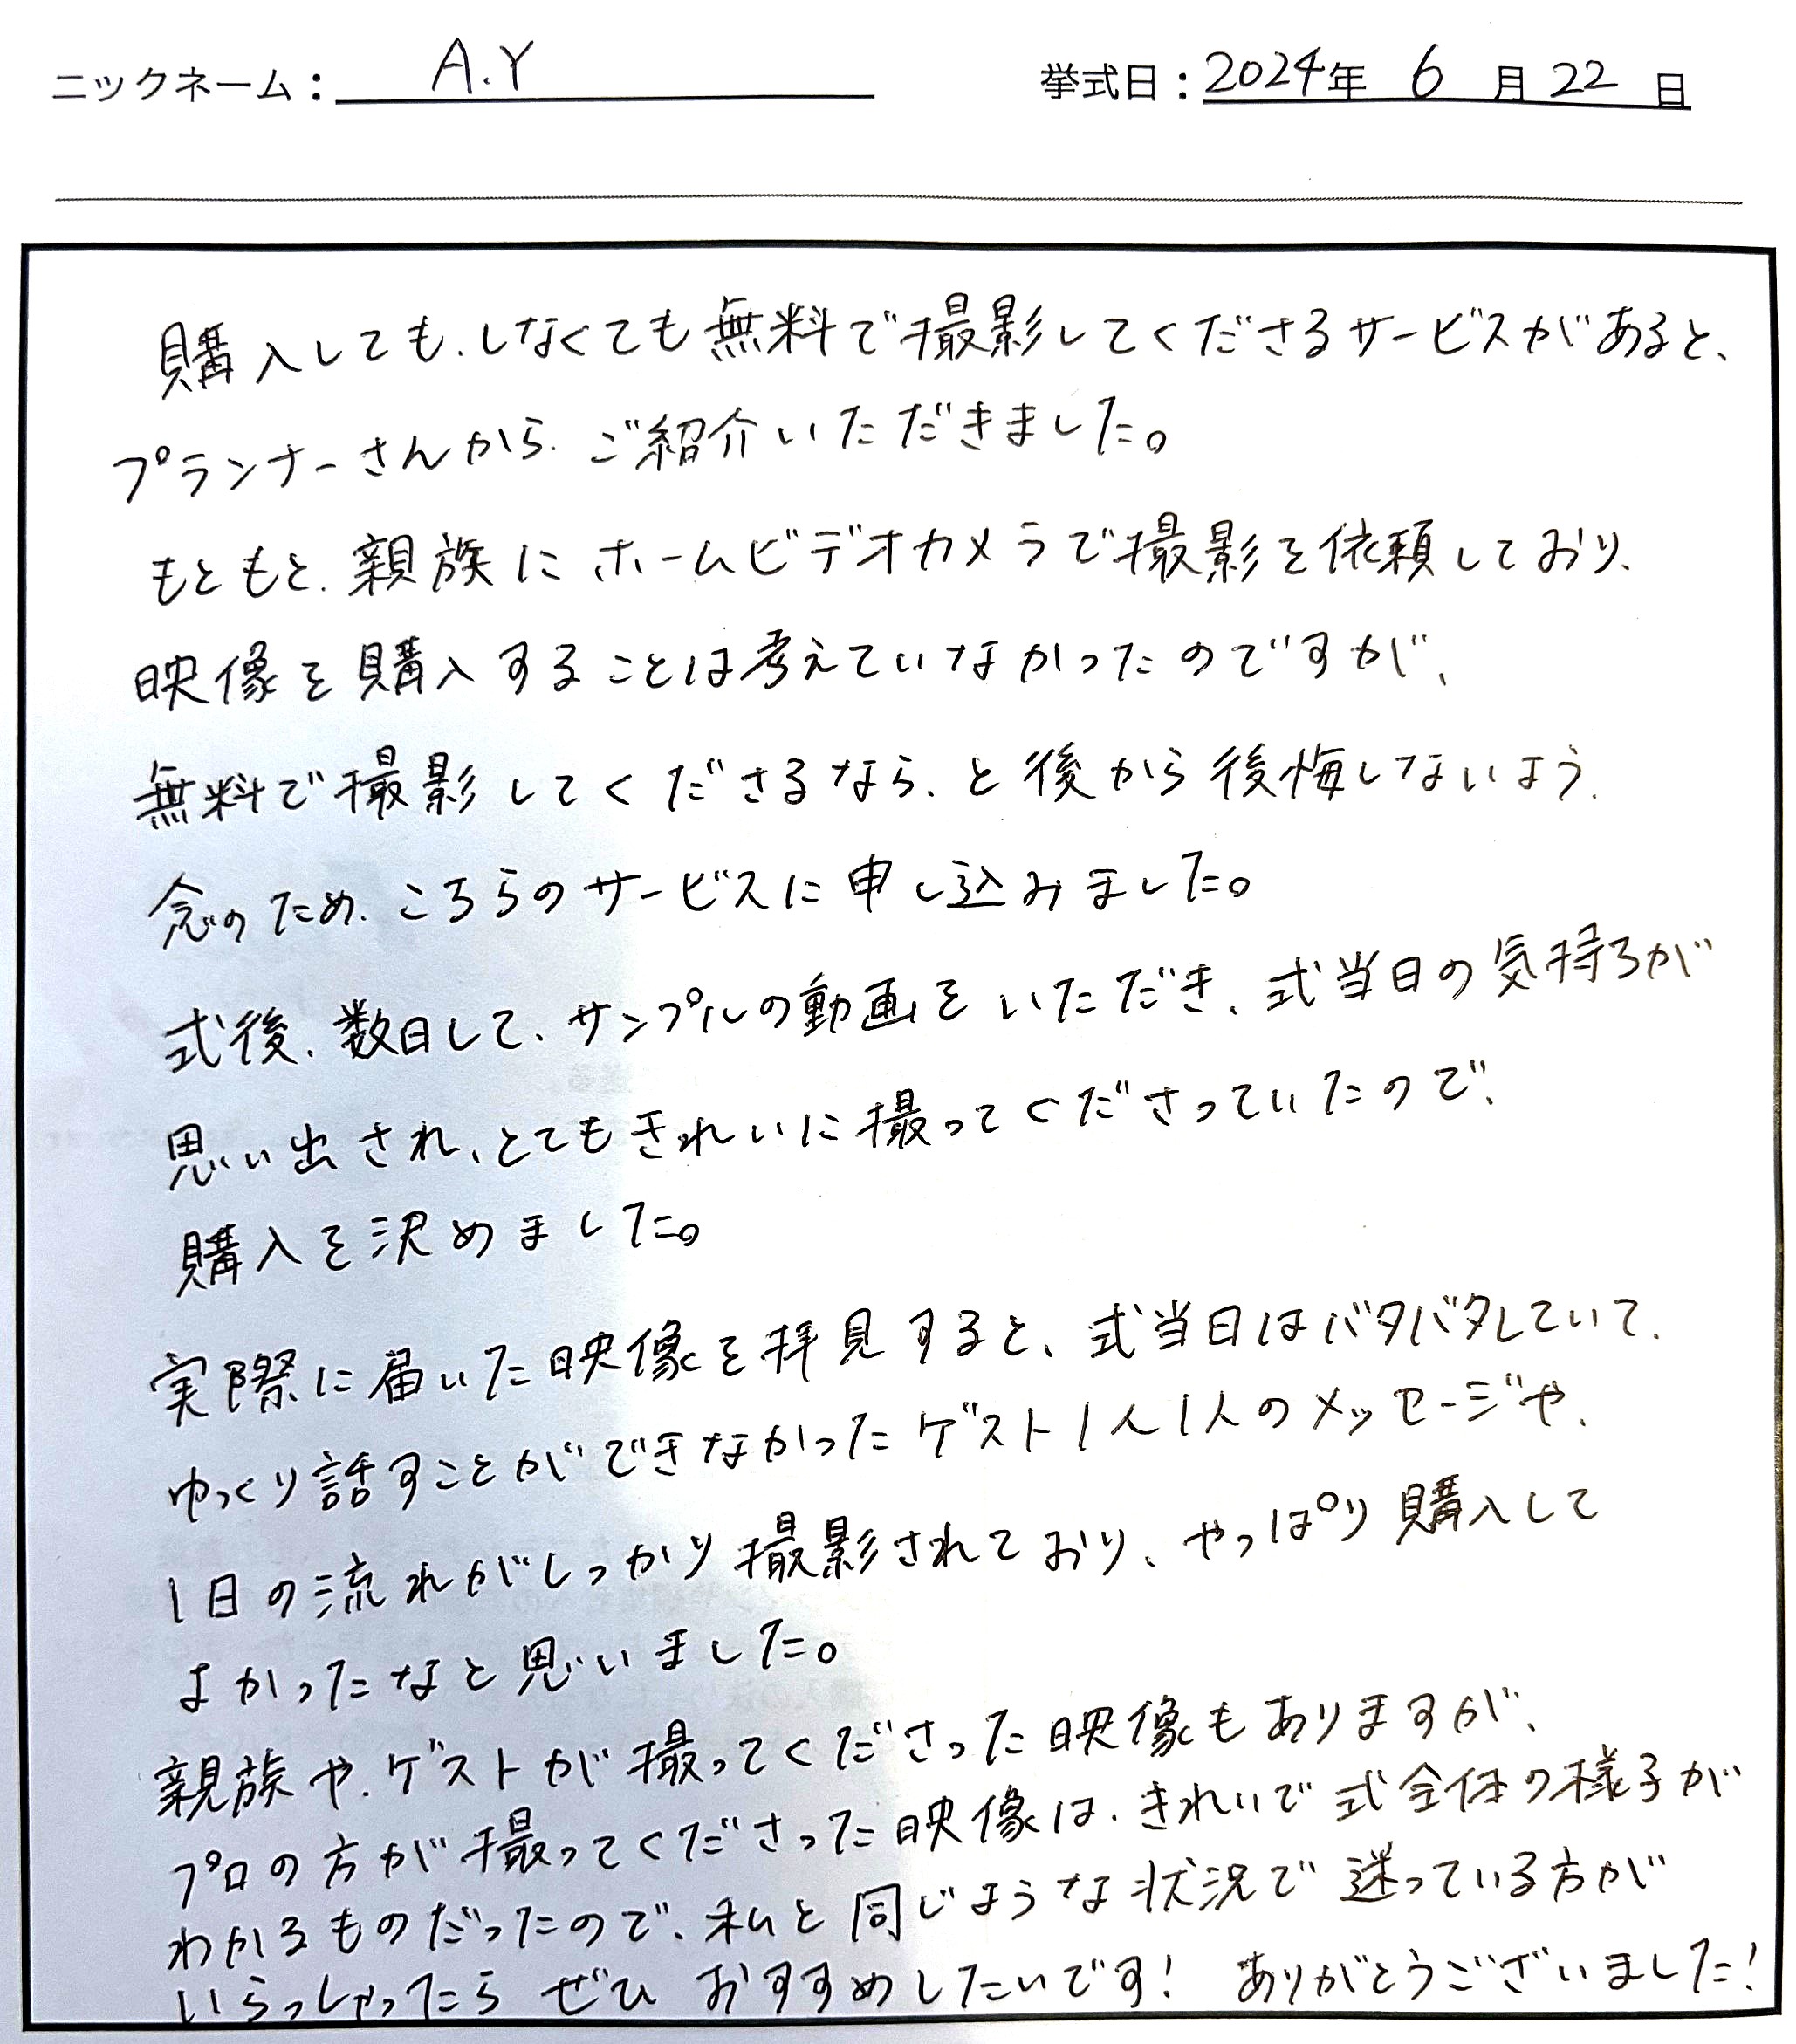 ニックネーム：A.Y 挙式日：2024年 6 月 22 日
購入しても、しなくても無料で撮影してくださるサービスがあると、
プランナーさんから、ご紹介いただきました。
もともと、親族にホームビデオカメラで撮影を依頼しており、
映像を購入することは考えていなかったのですが、
無料で撮影してくださるなら、と後から後悔しないよう、
念のため、こちらのサービスに申し込みました。
式後、数日して、サンプルの動画をいただき、式当日の気持ちが
思い出され、とてもきれいに撮ってくださっていたので、
購入を決めました。
実際に届いた映像を拝見すると、式当日はバタバタしていて、
ゆっくり話すことができなかったゲスト1人1人のメッセージや、
1日の流れがしっかり撮影されており、やっぱり購入して
よかったなと思いました。
親族や、ゲストが撮ってくださった映像もありますが、
プロの方が撮ってくださった映像は、きれいで式全体の様子が
わかるものだったので、私と同じような状況で迷っている方が
いらっしゃったらぜひおすすめしたいです！ ありがとうございました！